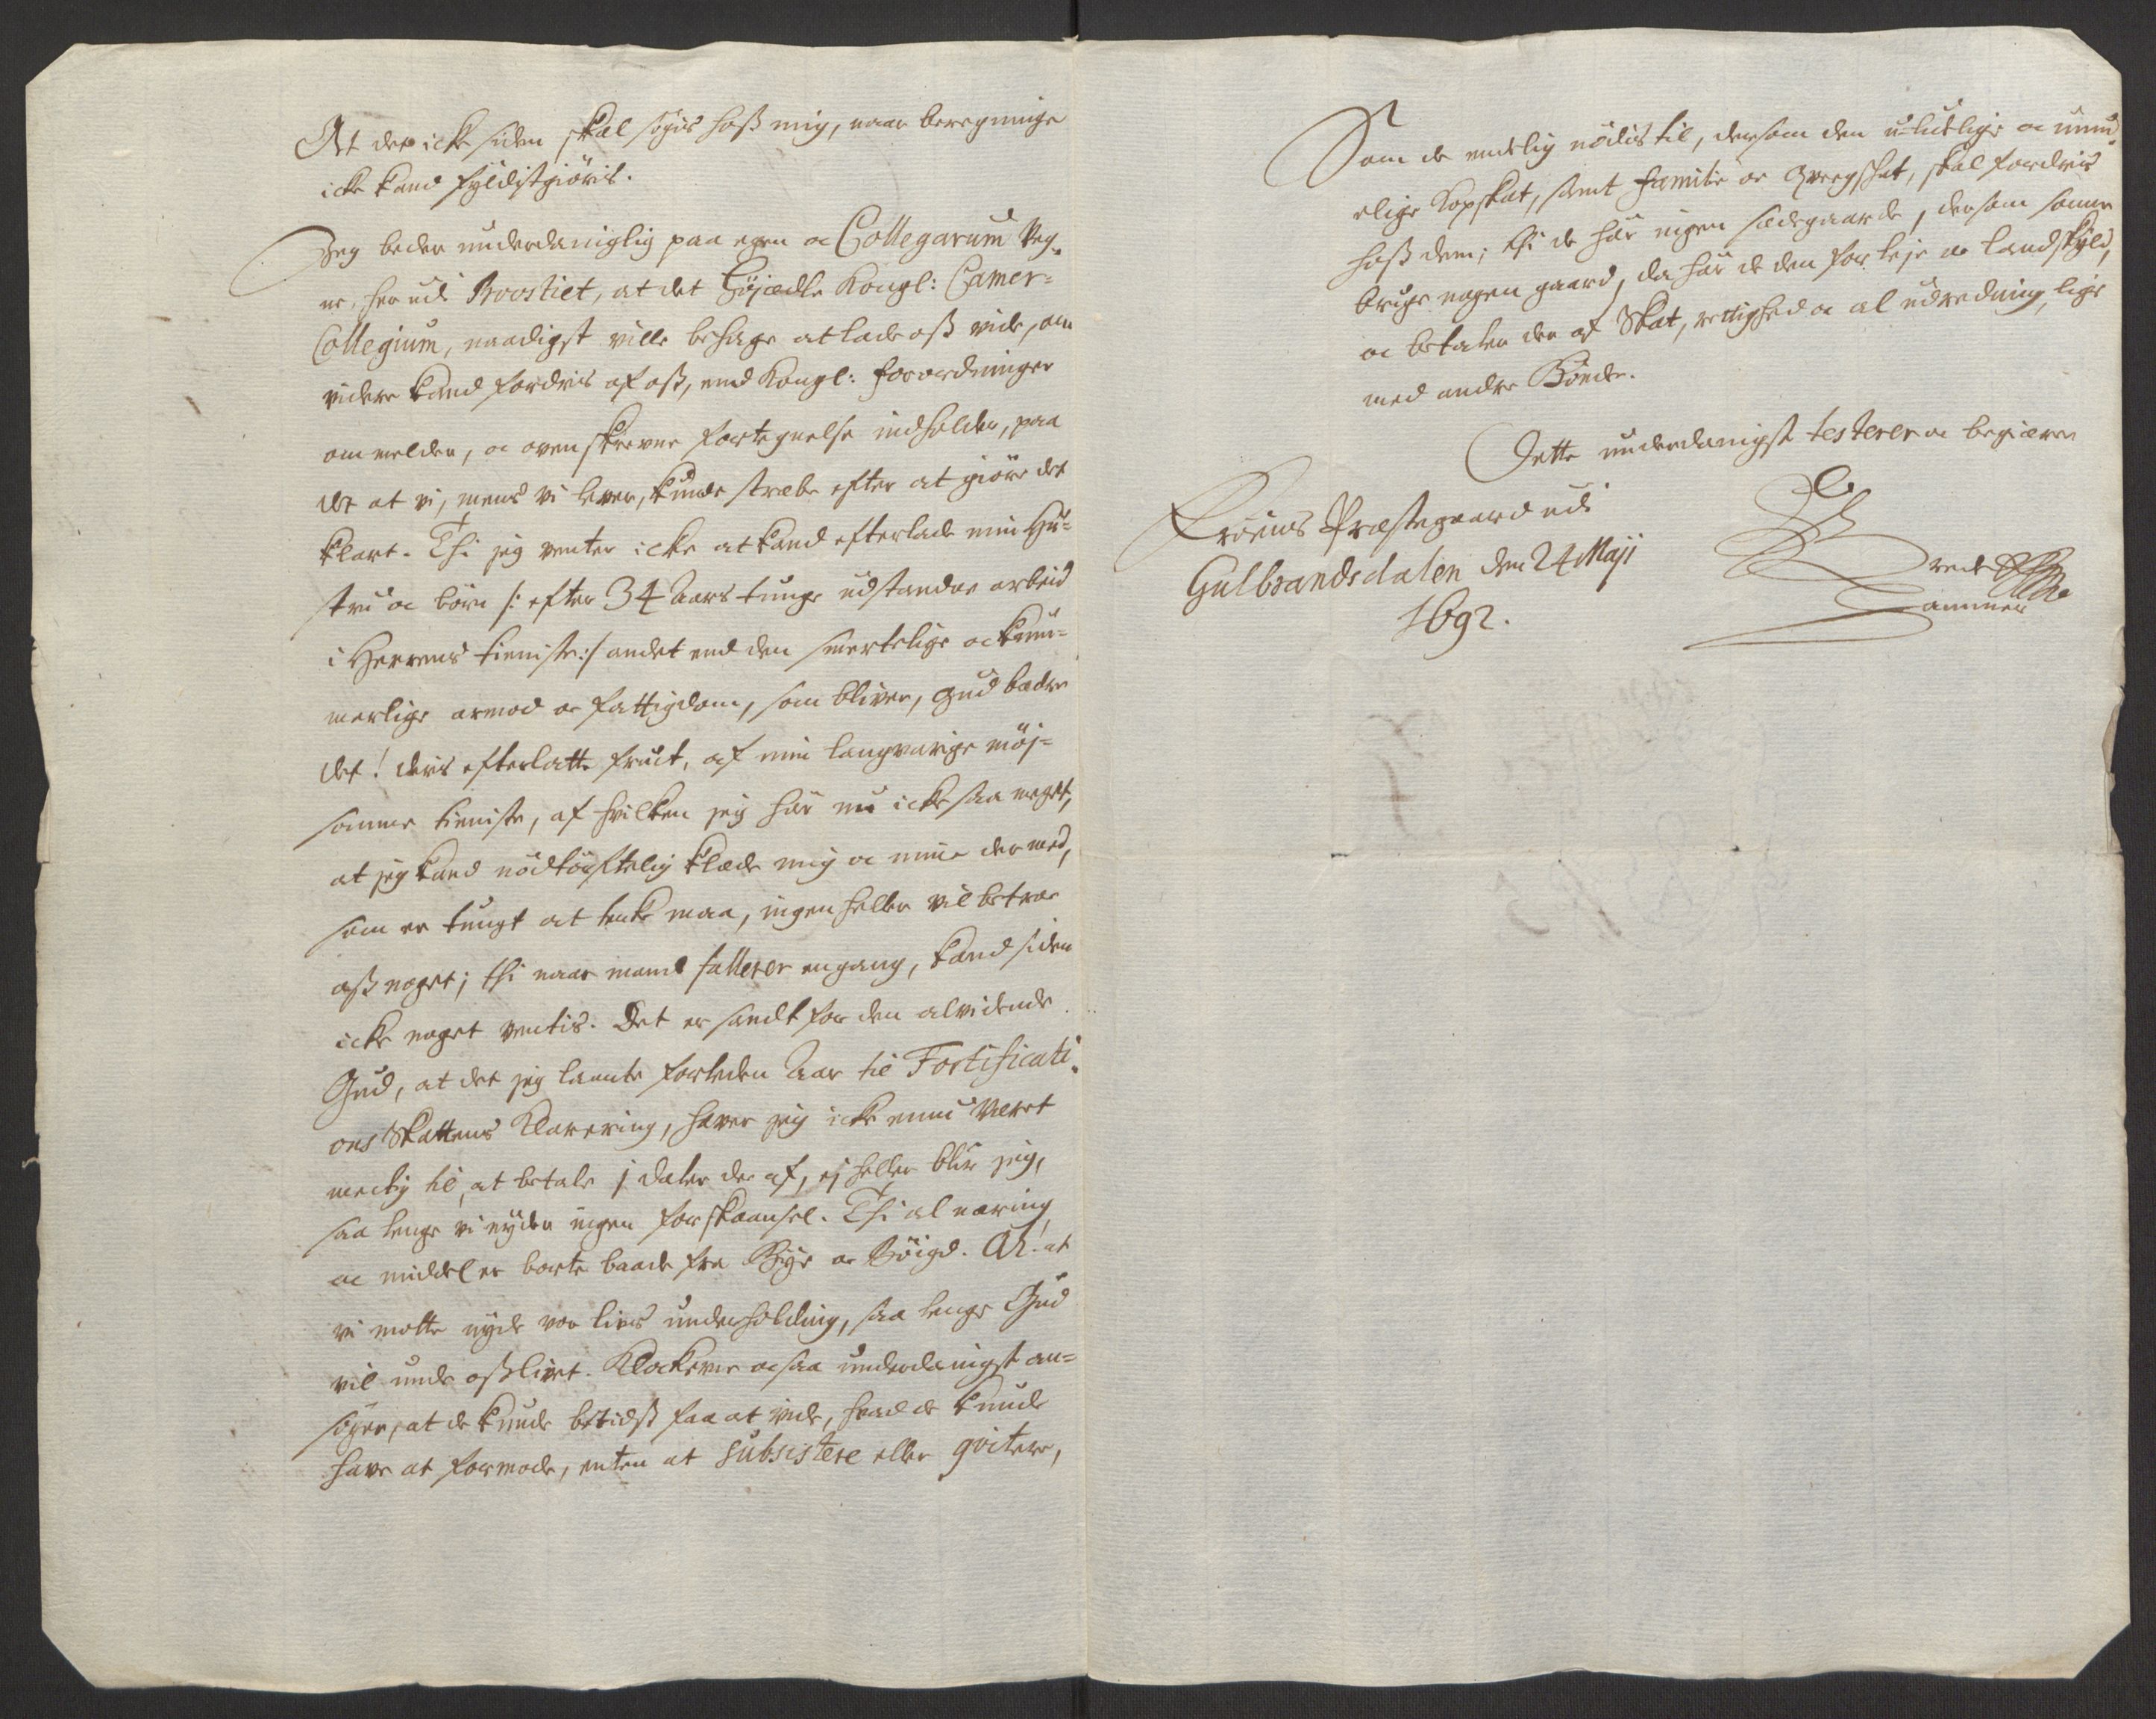 At det icke siden skal søgis hoß mig, naar beregninge
icke kand fyldistgiøris.
Jeg beder underdaniglig paa egen oc Collegarum Veg¬
ne, her udi Proostiet, at det Høyædle Kongl: Camer=
Collegium, naadigst ville behage at lade oß vide, om
videre kand fordris af oß, end Kongl: forordninger
om melder, oc ovenskrevne fortegnelse indholder, paa
det at vi, mens vi lever, kunde strebe efter at giøre det
klart. Thi jeg venter icke at kand efterlade min Hu=
stru oc børn /: efter 34 Aars tunge udstandne arbeid
i Herrens tieniste :/ andet end den smertelige oc kum=
merlige armod oc fattigdom, som bliver, Gud bædre
det! deris efterlatte fruct, af min langvarige møj=
somme tieniste, af hvilken jeg har nu icke saa meget,
at jeg kand nødtørftelig klæde mig oc mine der med,
som er tungt at tenke paa, ingen heller vil betroe
oß noget; thi naar mand falleret engang, kand siden
icke noget ventis. Det er sandt for den alvidende
Gud, at det jeg laante forleden Aar til Fortificati¬
ons Skattens Klarering, haver jeg icke ennu veret
mectig til, at betale j daler der af, ej heller blir jeg,
saa lenge vi nyder ingen forskaansel. Thi al næring
oc middel er borte baade fra Bye oc Bøigd. Ah! at
vi motte nyde vor livs underholding, saa lenge Gud
vil unde oß livet. Klockerne ocsaa underdanigst an=
søger, at de kunde betidß faa at vide, hvad de kunde
have at formode, enten at subsistere eller qvitere,
Som de endelig nødis til, dersom den u-lidelige oc umu¬
elige Kopskat, samt familie oc Qvegskat, skal fordris
hoß dem; thi de har ingen sædegaarde, dersom somme
bruge nogen gaard, da har de den for leje oc landskyld,
oc betaler der af Skat, rettighed oc al udredning, lige
med andre Bønder.
Dette underdanigst testerer oc begiærer
Froens Præstegaard udi
Gulbrandsdalen den 24 Maji
1692.